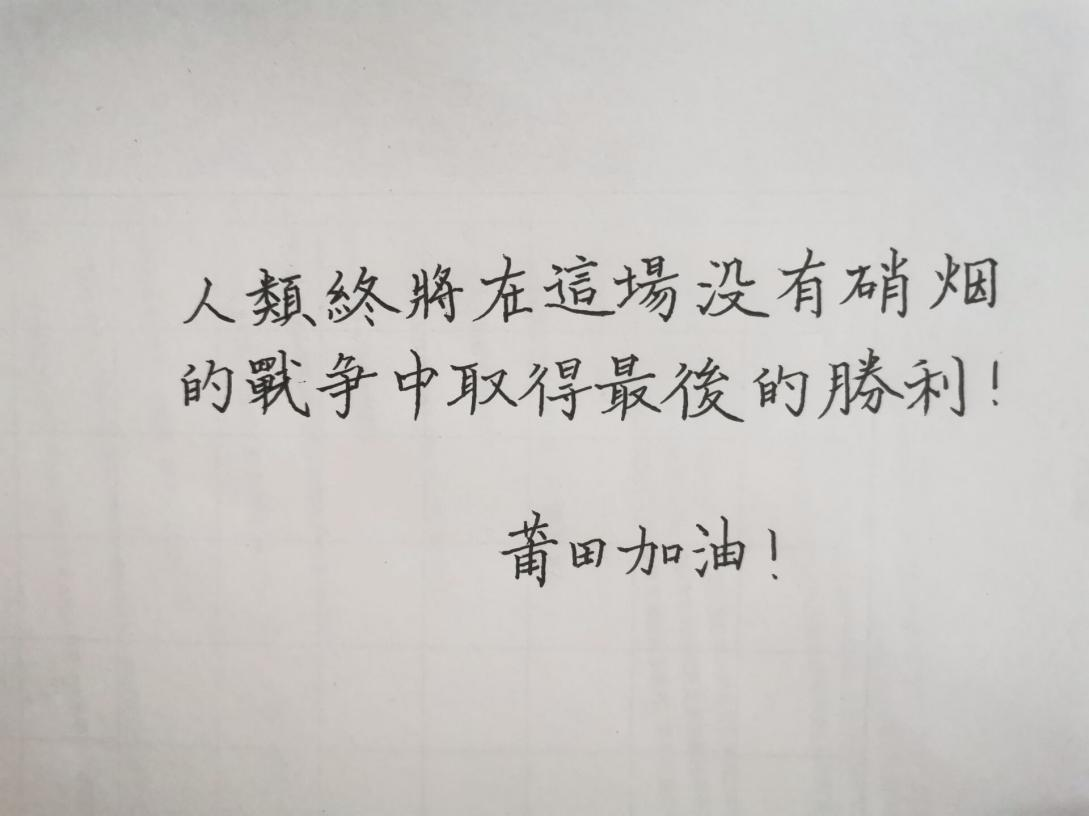 人類終將在這場没有硝烟
的戰爭中取得最後的勝利！
莆田加油！